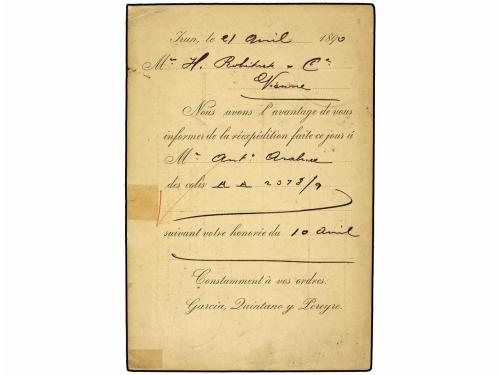 Irun, le 21 Avril 1890
Mr. H. & Cie
Vienne
Nous avons l'avantage de vous
informer de la réexpédition faite ce jour à
Mr. Anto.
des colis A A 2078/9
suivant votre honorée du 10 Avril
Constamment à vos ordres.
García, Quintano y Pereyro.